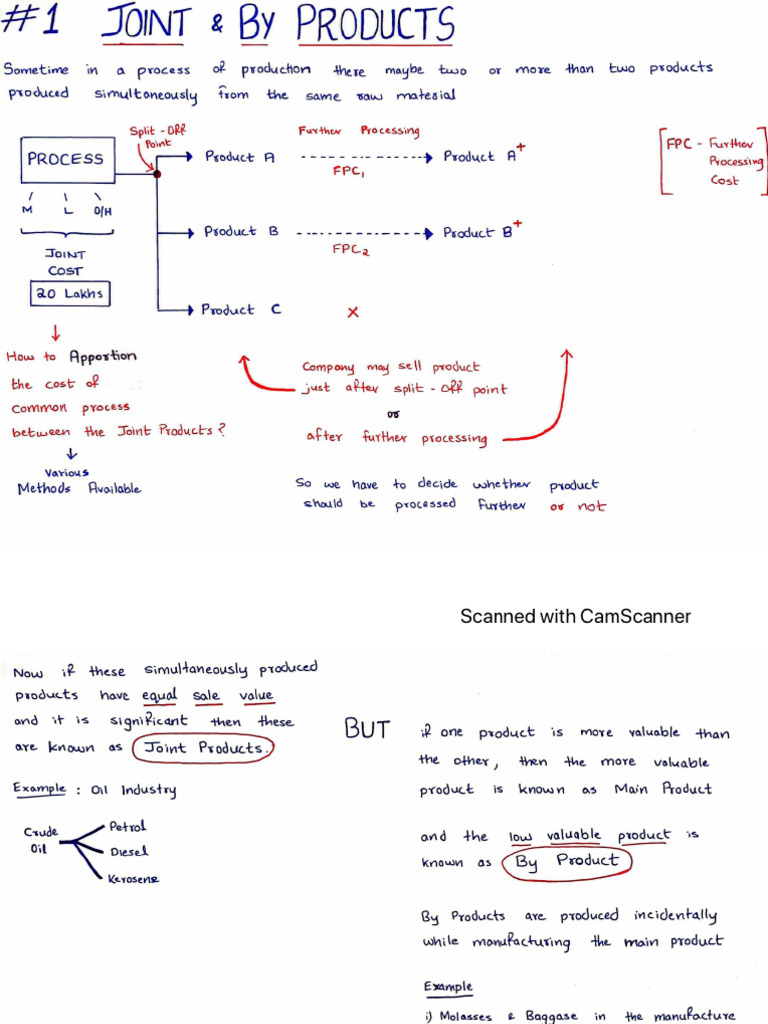 #1 JOINT & BY PRODUCTS
Sometime in a process of production there maybe two or more than two products
produced simultaneously from the same raw material
Split-Off
Point
Further Processing
PROCESS
Product A
Product A+
FPC1
[FPC - Further
Processing
Cost]
M L O/H
Product B
Product B+
FPC2
JOINT
COST
20 Lakhs
Product C
X
How to Apportion
the cost of
common process
between the Joint Products?
Various
Methods Available
Company may sell product
just after split-off point
or
after further processing
So we have to decide whether product
should be processed further or not
Scanned with CamScanner
Now if these simultaneously produced
products have equal sale value
and it is significant then these
are known as Joint Products.
Example : Oil Industry
Crude
Oil
Petrol
Diesel
Kerosene
BUT
if one product is more valuable than
the other, then the more valuable
product is known as Main Product
and the low valuable product is
known as By Product
By Products are produced incidentally
while manufacturing the main product
Example
i) Molasses & Baggase in the manufacture